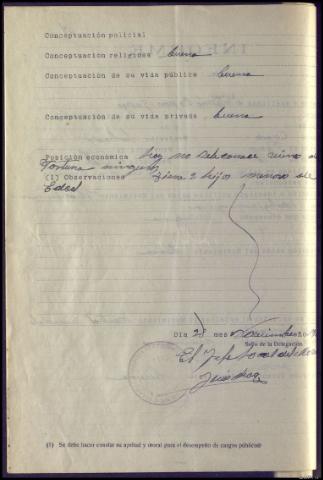 Conceptuación policial
Conceptuación religiosa buena
Conceptuación de su vida pública buena
Conceptuación de su vida privada buena
Posición económica hoy no se le conoce
fortuna ninguna
(1) Observaciones tiene 2 hijos menores de
edad
Día 28 mes Noviembre año
Sello de la Delegación
El Jefe Local
(1) Se debe hacer constar su aptitud y moral para el desempeño de cargos públicos